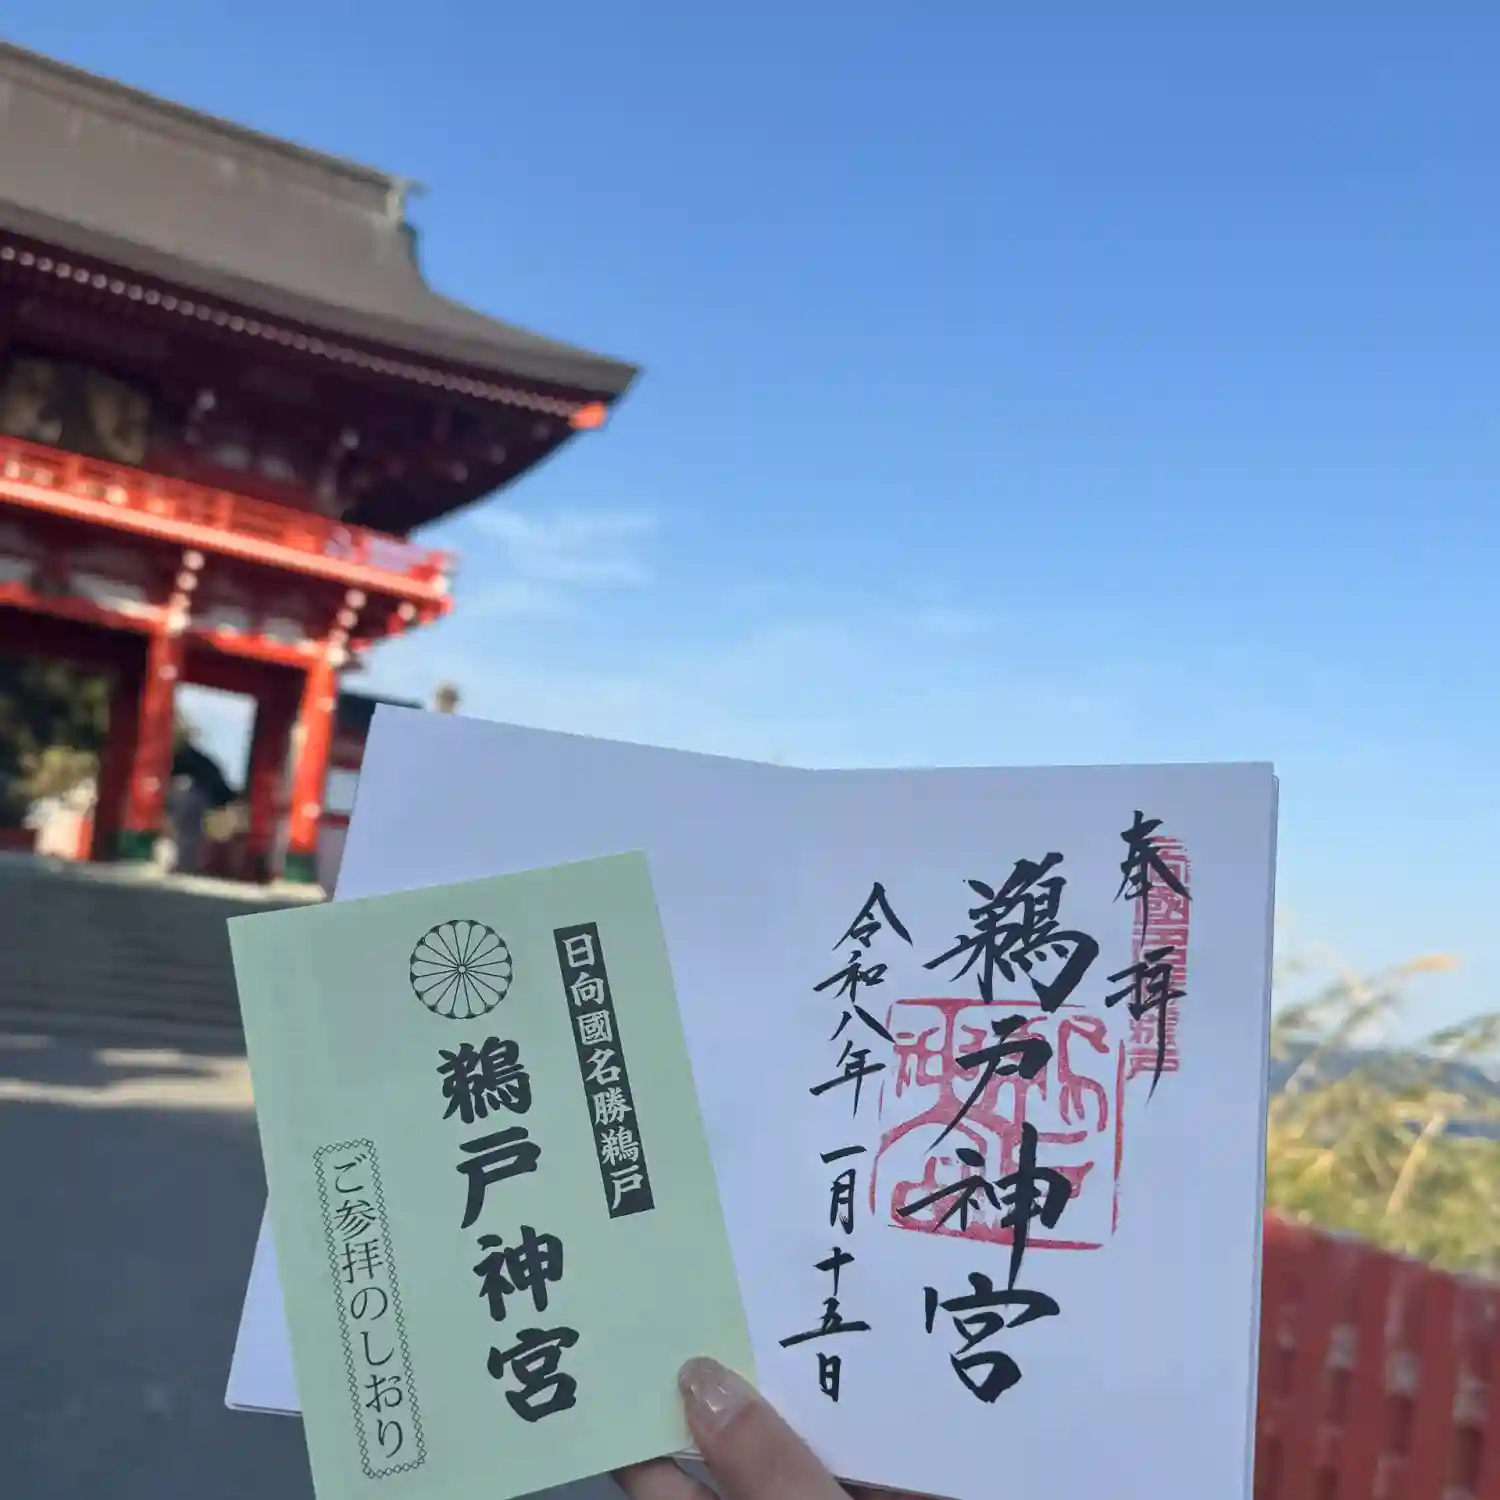 奉拝
鵜戸神宮
令和八年一月十五日
日向國名勝鵜戸
鵜戸神宮
ご参拝のしおり